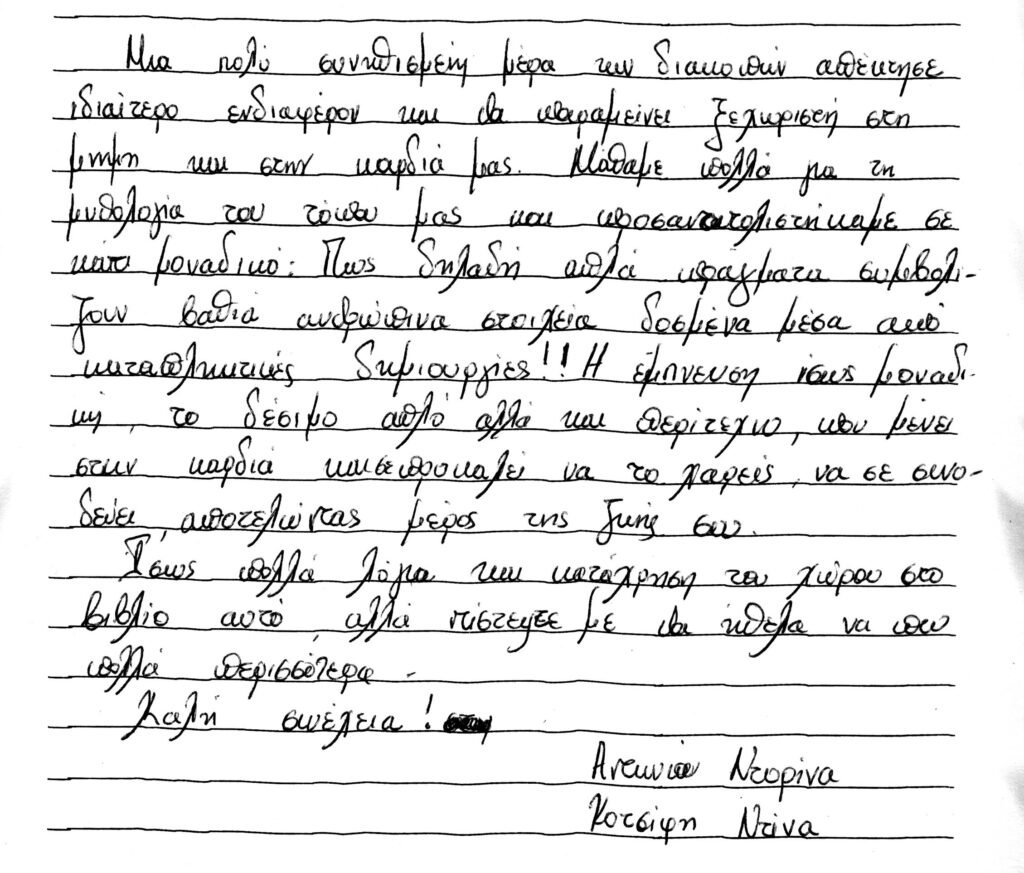 Μια πολύ συνηθισμένη μέρα των διακοπών απέκτησε
ιδιαίτερο ενδιαφέρον και θα παραμείνει ξεχωριστή στη
μνήμη και στην καρδιά μας. Μάθαμε πολλά για τη
μυθολογία του τόπου μας και προσανατολιστήκαμε σε
κάτι μοναδικό: Πως δηλαδή απλά πράγματα συμβολί-
ζουν βαθιά ανθρώπινα στοιχεία δοσμένα μέσα από
καταπληκτικές δημιουργίες!! Η έμπνευση ίσως μοναδι-
κή, το δέσιμο απλό αλλά και περίτεχνο, που μένει
στην καρδιά και σε προκαλεί να το χαρείς, να σε συνο-
δεύει, αποτελώντας μέρος της ζωής σου.
Ίσως πολλά λόγια και κατάχρηση του χώρου στο
βιβλίο αυτό, αλλά πίστεψέ με θα ήθελα να πω
πολλά περισσότερα.
Καλή συνέχεια!
Αντωνίου Ντορίνα
Κοτσίφη Ντίνα